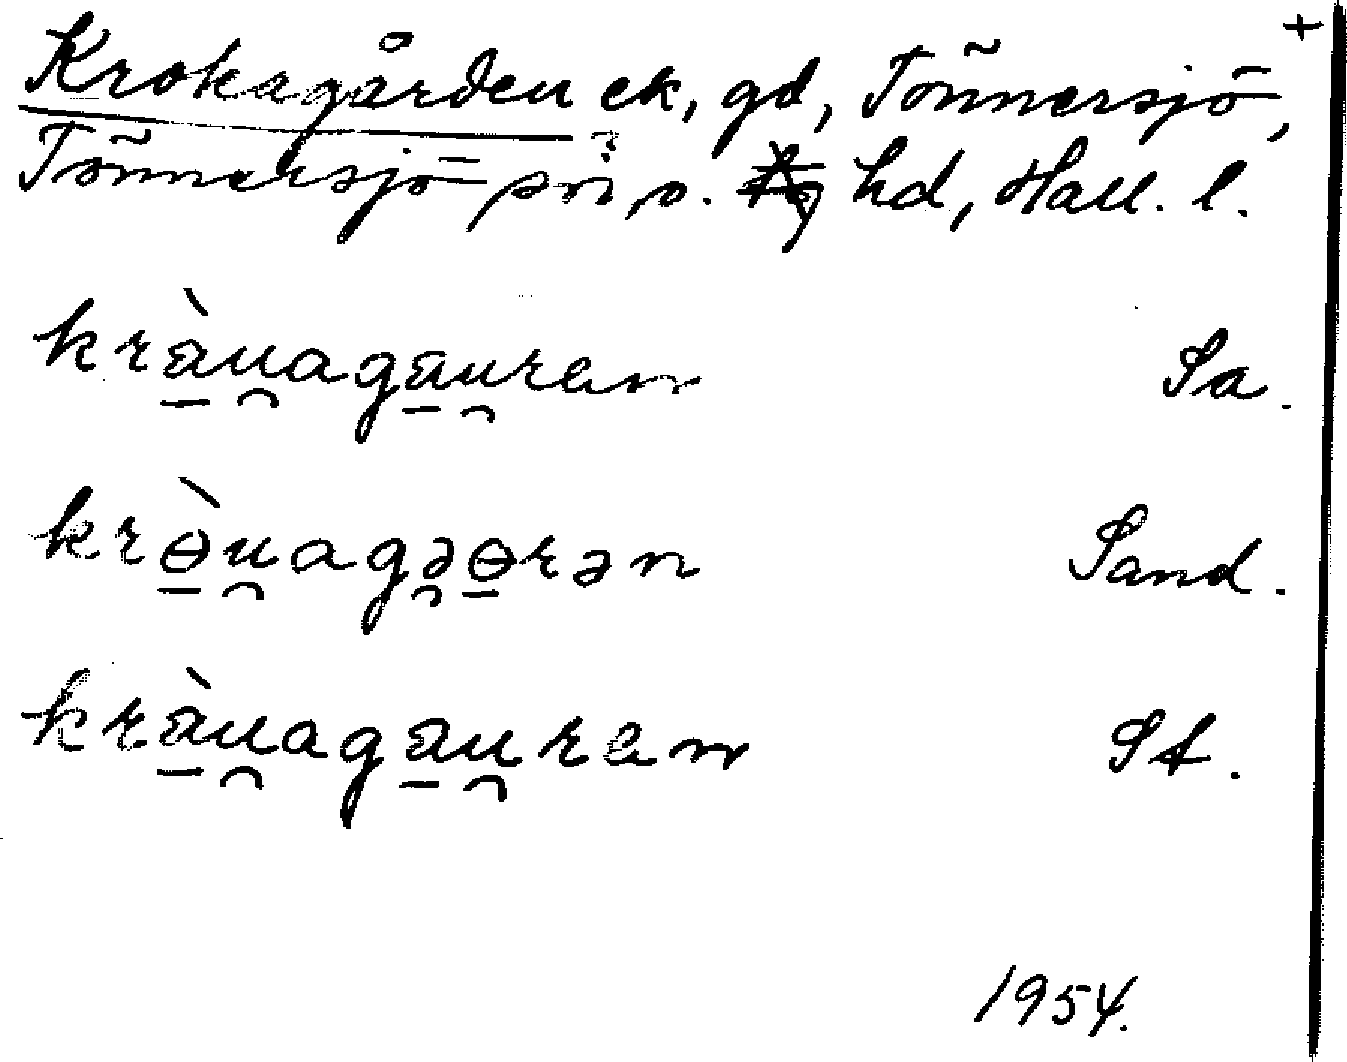 +
Krokagården ek, gd, Tönnersjö,
Tönnersjö sn, o. hd, Hall. l.
krа̀u̯agau̯ren Sa.
krɵ̀u̯agə̯ɵrən Sand.
kràu̯agau̯ren St.
1954.